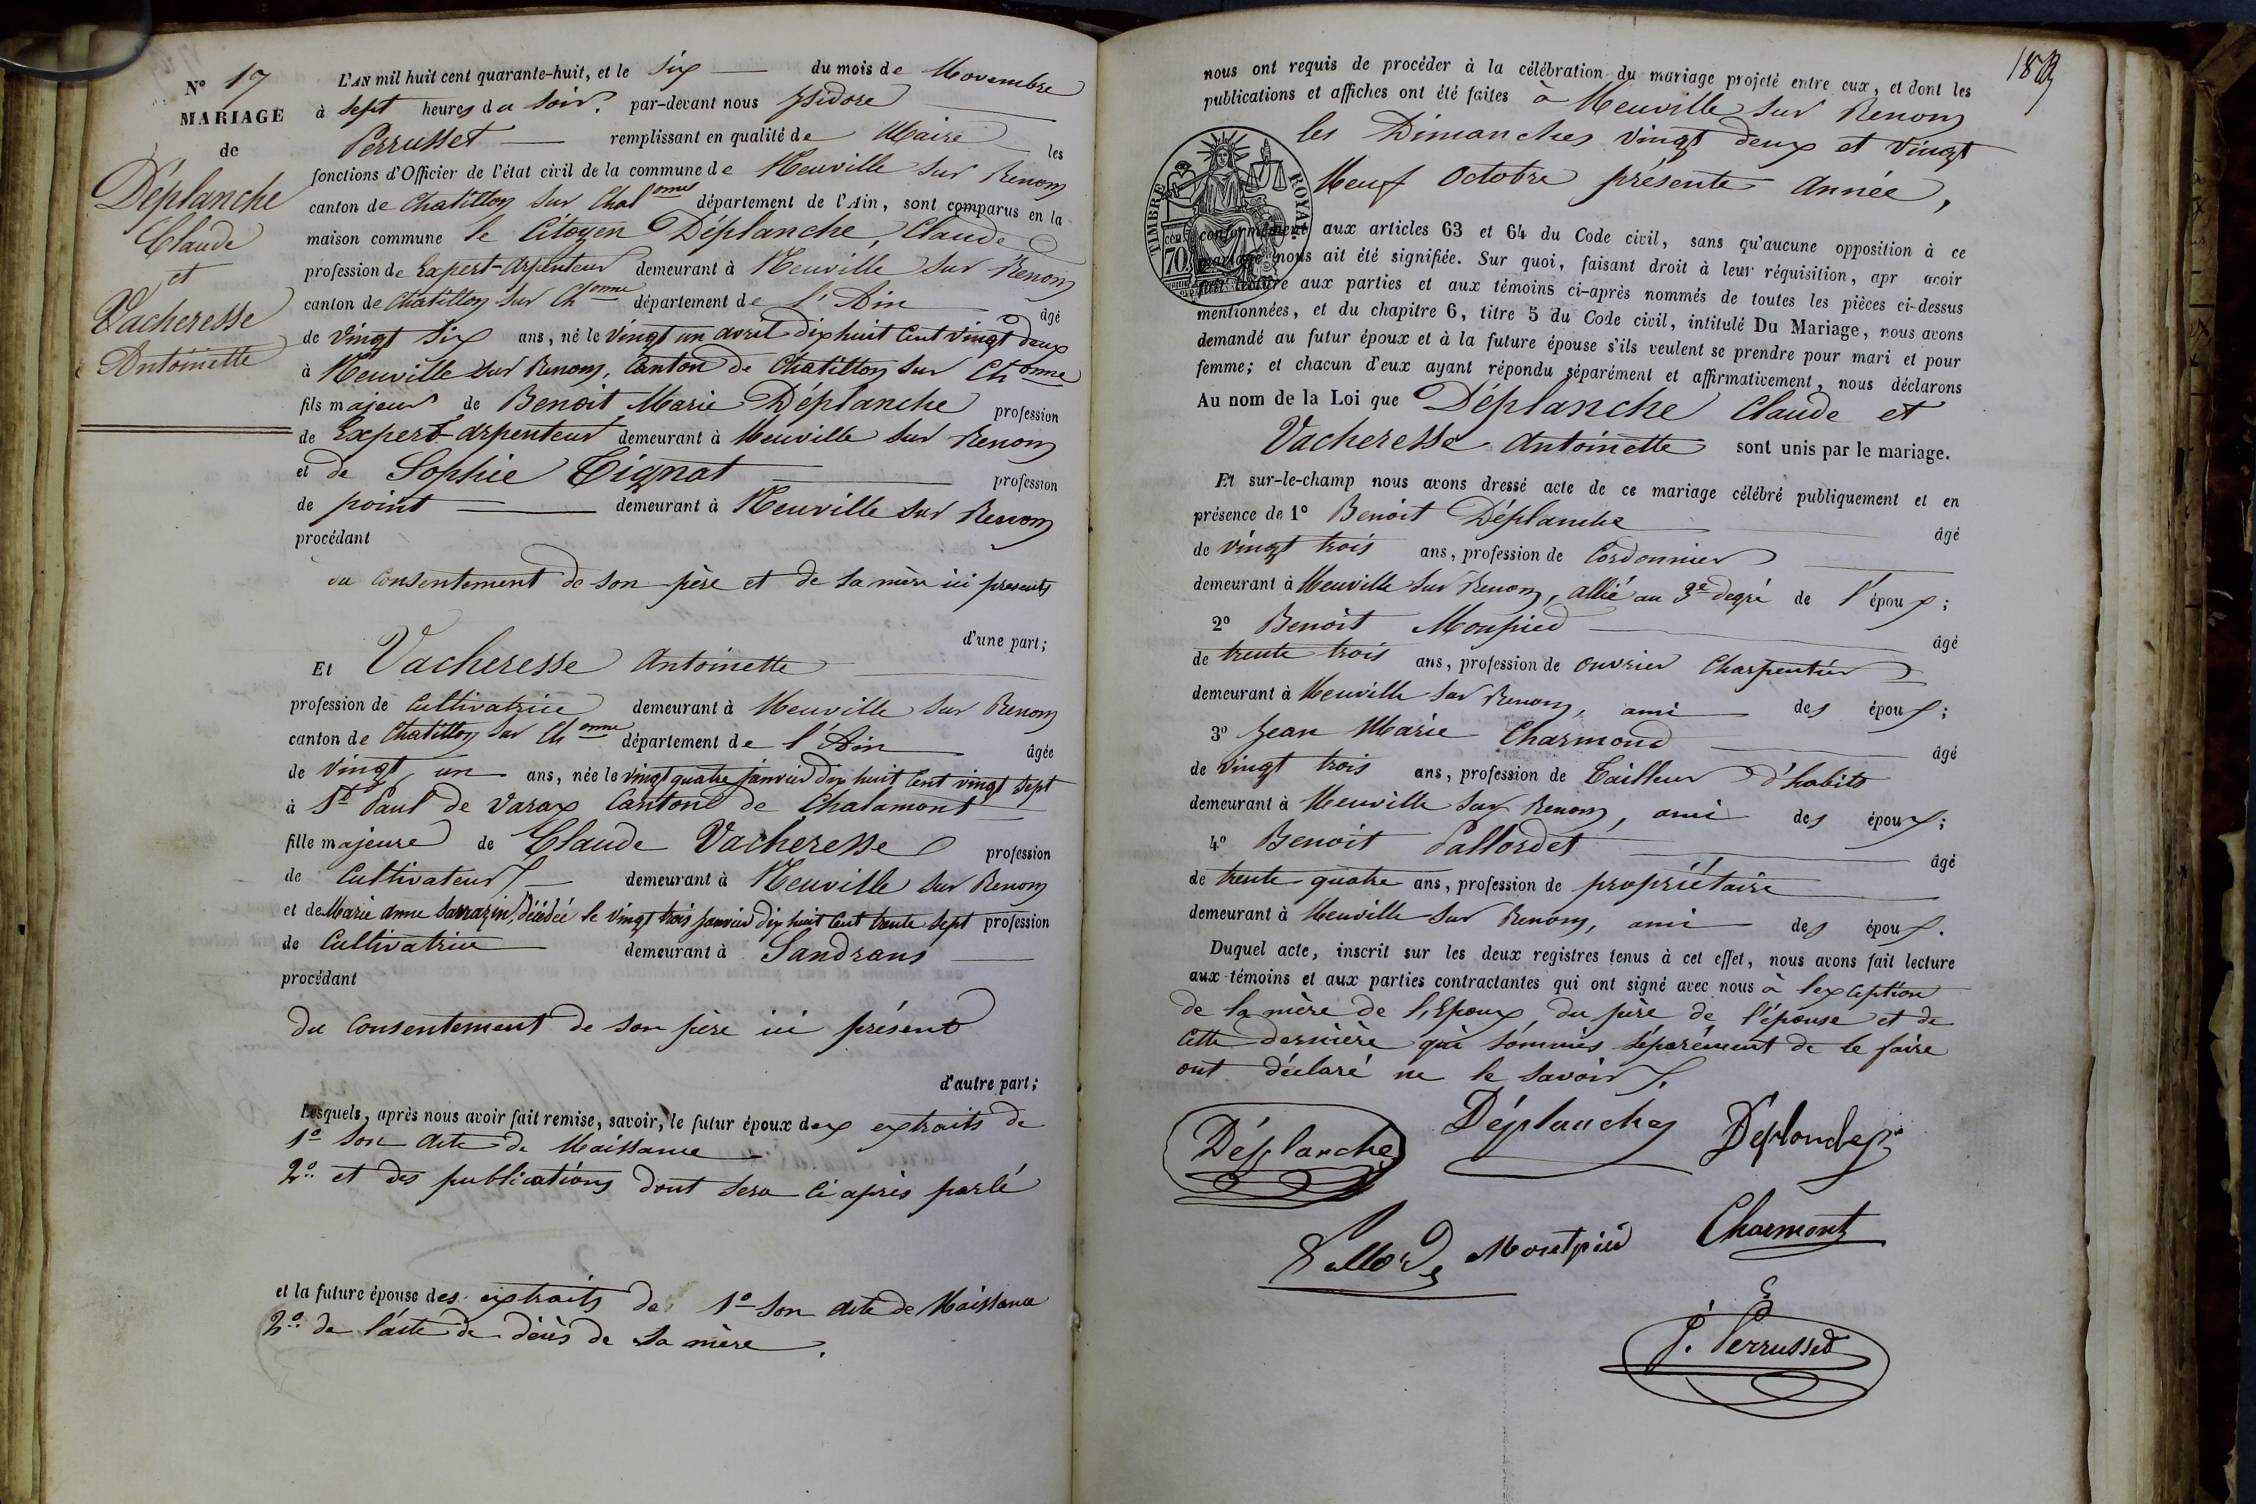 N° 17
MARIAGE
de
Déplanche
Claude
et
Vacheresse
Antoinette
L'AN mil huit cent quarante-huit, et le six du mois de Novembre
à sept heures du soir, par-devant nous Ysidore
Perrusset remplissant en qualité de Maire les
fonctions d'Officier de l'état civil de la commune de Neuville sur Renom
canton de Chatillon sur Chalonne département de l'Ain, sont comparus en la
maison commune le Citoyen Déplanche, Claude
profession de Expert-Arpenteur demeurant à Neuville sur Renom
canton de Chatillon sur Chonne département de l'Ain âgé
de vingt six ans, né le vingt un avril dix huit Cent vingt deux
à Neuville sur Renom, Canton de Chatillon sur Chonne
fils majeur de Benoit Marie Déplanche profession
de Expert-arpenteur demeurant à Neuville sur Renom
et de Sophie Tignat profession
de point demeurant à Neuville sur Renom
procédant
du consentement de son père et de sa mère ici presents
d'une part;
Et Vacheresse Antoinette
profession de Cultivatrice demeurant à Neuville sur Renom
canton de Chatillon sur Chonne département de l'Ain âgée
de vingt un ans, née le vingt quatre janvier dix huit Cent vingt sept
à St Paul de Varax Canton de Chalamont
fille majeure de Claude Vacheresse profession
de Cultivateur demeurant à Neuville sur Renom
et de Marie anne Sarrazin, décédée le vingt trois janvier dix huit Cent trente sept profession
de Cultivatrice demeurant à Sandrans
procédant
du Consentement de son père ici présent
d'autre part;
Lesquels, après nous avoir fait remise, savoir, le futur époux des extraits de
1° son acte de Naissance
2° et des publications dont sera ci après parlé
et la future épouse des extraits de 1° son acte de Naissance
2° de l'acte de décès de sa mère.
189
nous ont requis de procéder à la célébration du mariage projeté entre eux, et dont les
publications et affiches ont été faites à Neuville sur Renom
les Dimanches vingt deux et vingt
Neuf Octobre présente année,
TIMBRE ROYAL
70
conformément aux articles 63 et 64 du Code civil, sans qu'aucune opposition à ce
mariage nous ait été signifiée. Sur quoi, faisant droit à leur réquisition, apr avoir
fait lecture aux parties et aux témoins ci-après nommés de toutes les pièces ci-dessus
mentionnées, et du chapitre 6, titre 5 du Code civil, intitulé Du Mariage, nous avons
demandé au futur époux et à la future épouse s'ils veulent se prendre pour mari et pour
femme; et chacun d'eux ayant répondu séparément et affirmativement, nous déclarons
Au nom de la Loi que Déplanche Claude et
Vacheresse Antoinette sont unis par le mariage.
Et sur-le-champ nous avons dressé acte de ce mariage célébré publiquement et en
présence de 1° Benoit Déplanche âgé
de vingt trois ans, profession de Cordonnier
demeurant à Neuville sur Renom, allié au 3e degré de l'époux;
2° Benoit Monpied âgé
de trente trois ans, profession de ouvrier Charpentier
demeurant à Neuville sur Renom, ami des époux;
3° Jean Marie Charmond âgé
de vingt trois ans, profession de Tailleur d'habits
demeurant à Neuville sur Renom, ami des époux;
4° Benoit Pallordet âgé
de trente quatre ans, profession de propriétaire
demeurant à Neuville sur Renom, ami des époux.
Duquel acte, inscrit sur les deux registres tenus à cet effet, nous avons fait lecture
aux témoins et aux parties contractantes qui ont signé avec nous à l'exception
de la mère de l'Epoux, du père de l'épouse et de
Cette dernière qui sommés séparément de le faire
ont déclaré ne le savoir.
Déplanche Déplanche Deplanche
Pallorde Montpied Charmont
J. Perrusset